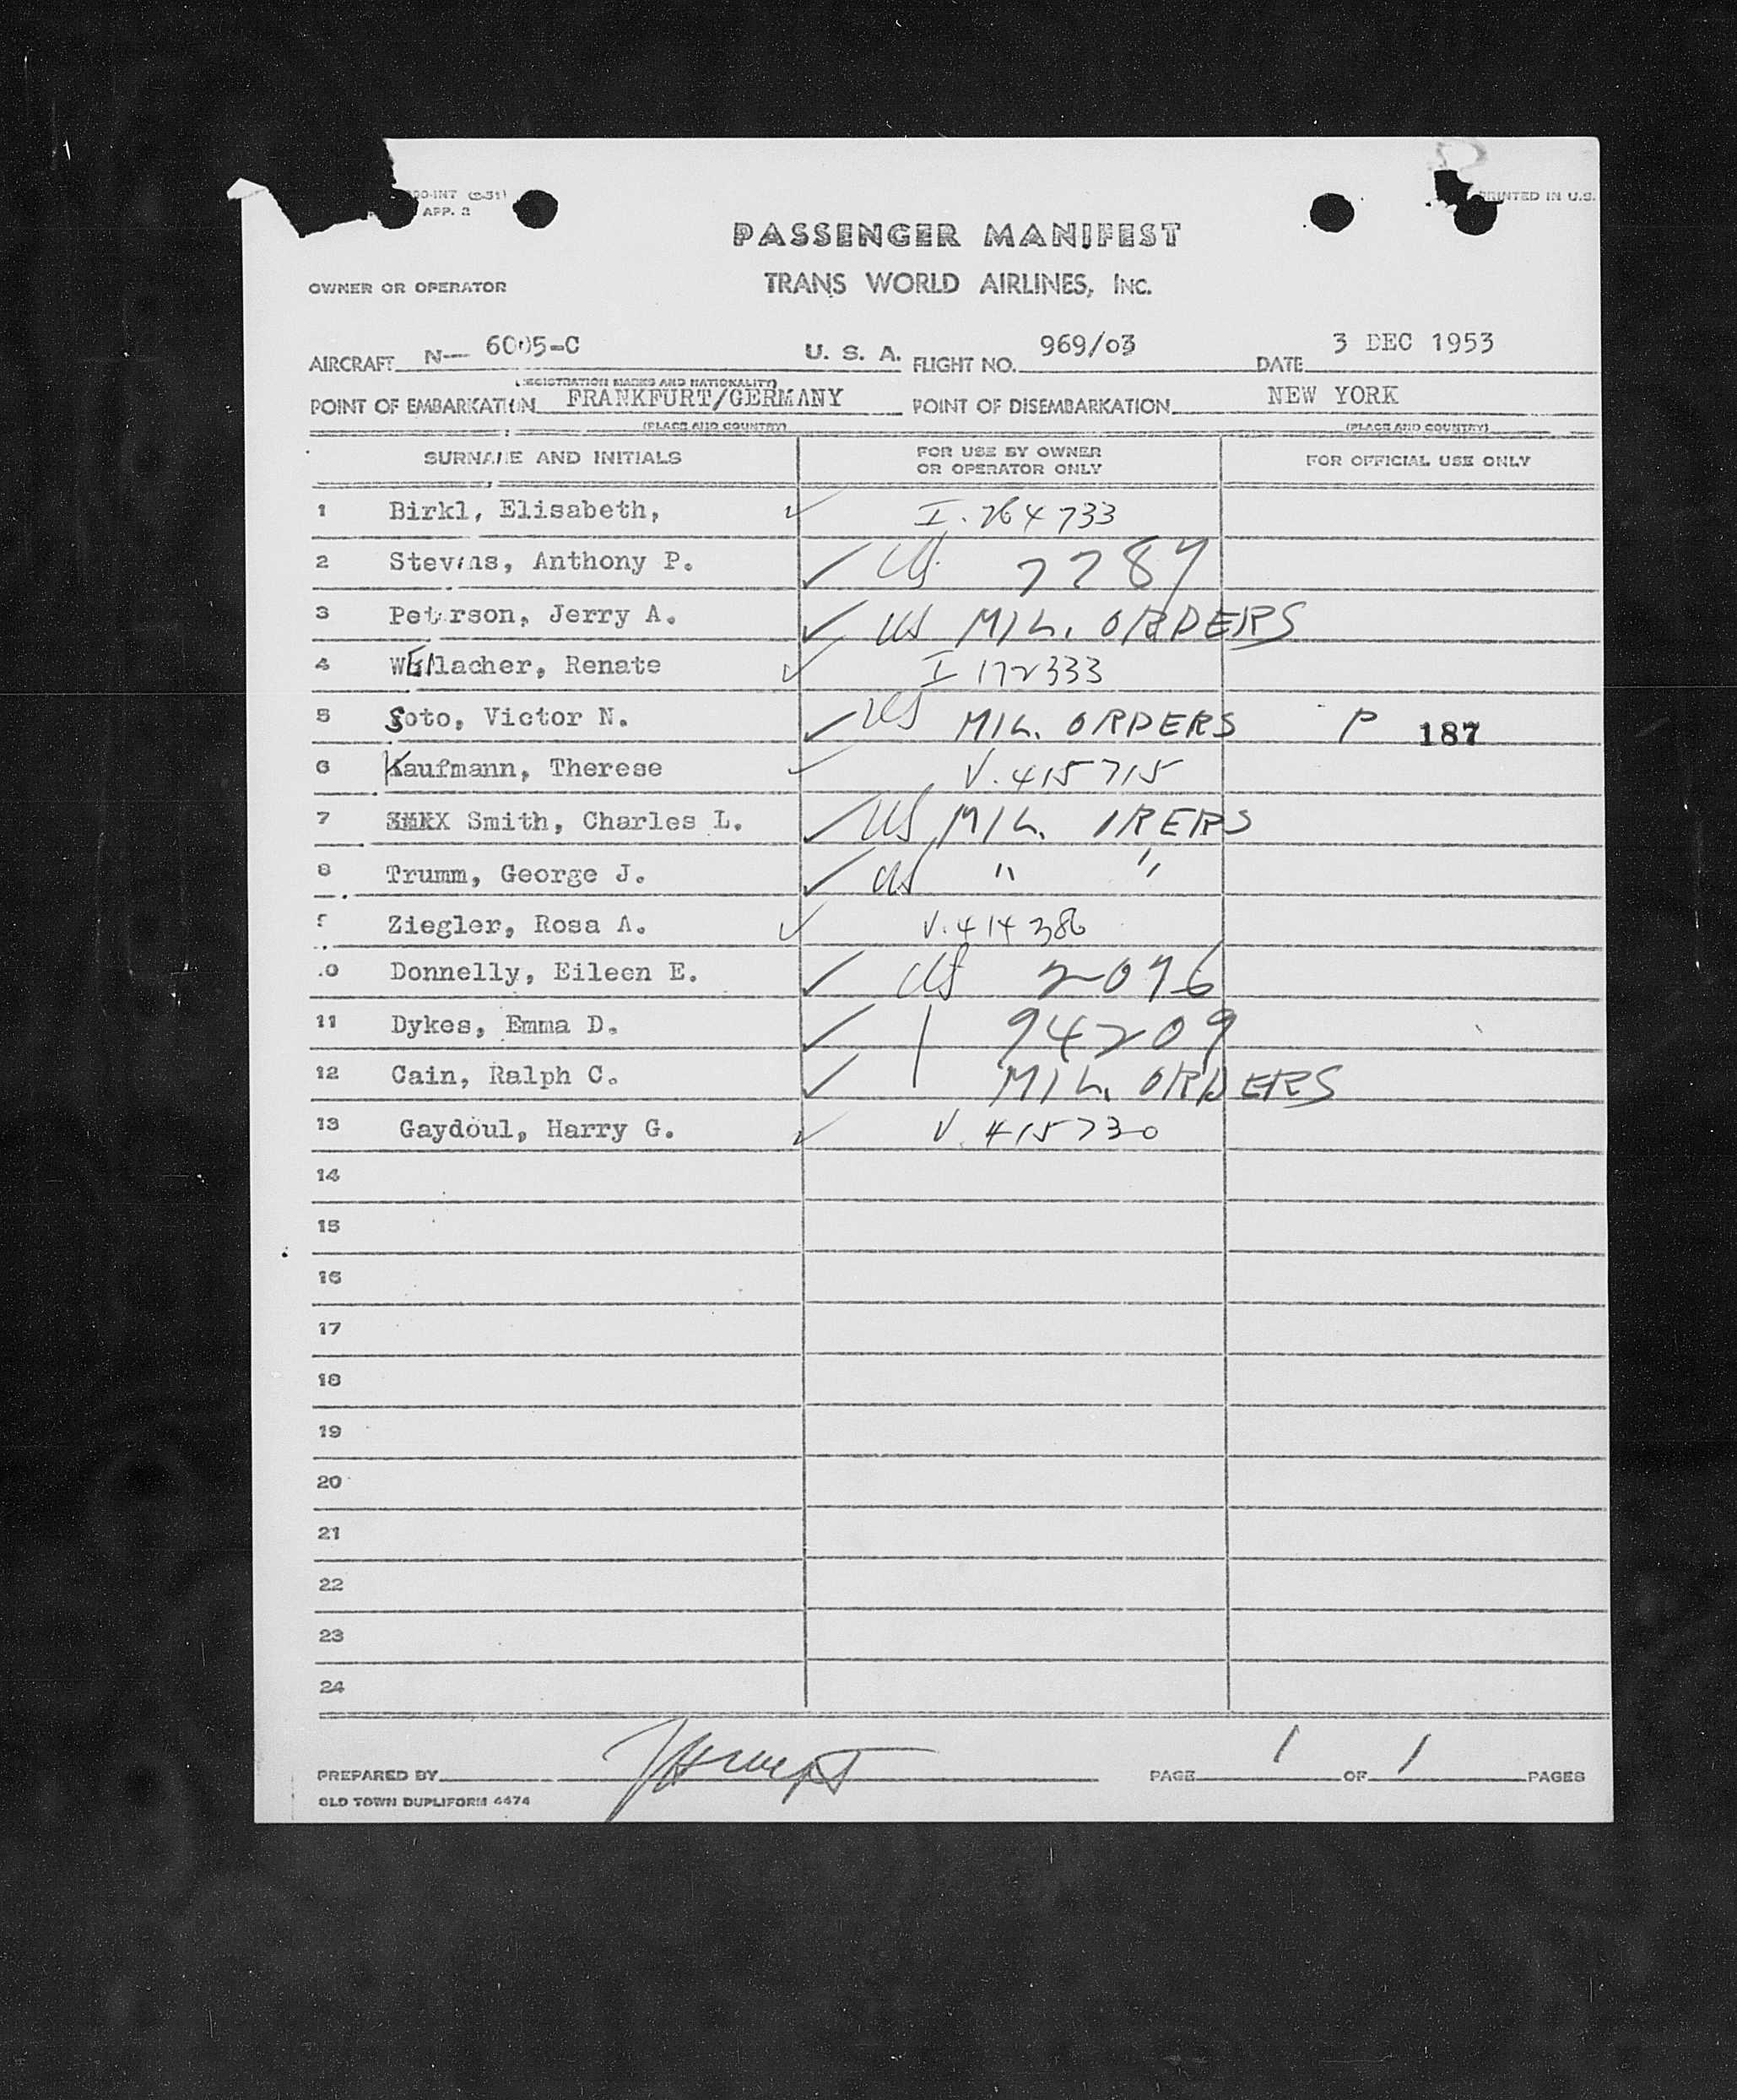 00-INT (2-51)
APP. 2
PRINTED IN U.S.
PASSENGER MANIFEST
OWNER OR OPERATOR TRANS WORLD AIRLINES, INC.
AIRCRAFT N— 6005-C U. S. A. FLIGHT NO. 969/03 DATE 3 DEC 1953
(REGISTRATION MARKS AND NATIONALITY)
POINT OF EMBARKATION FRANKFURT/GERMANY POINT OF DISEMBARKATION NEW YORK
(PLACE AND COUNTRY) (PLACE AND COUNTRY)
SURNAME AND INITIALS FOR USE BY OWNER OR OPERATOR ONLY FOR OFFICIAL USE ONLY
1 Birkl, Elisabeth, ✓ I. 764733
2 Stevens, Anthony P. ✓ US 7787
3 Peterson, Jerry A. ✓ US MIL. ORDERS
4 Wellacher, Renate ✓ I 172333
5 Soto, Victor N. ✓ US MIL. ORDERS P 187
6 Kaufmann, Therese ✓ V. 415715
7 Smith, Charles L. ✓ US MIL. IRERS
8 Trumm, George J. ✓ US " "
9 Ziegler, Rosa A. ✓ V. 414386
10 Donnelly, Eileen E. ✓ US 2096
11 Dykes, Emma D. ✓ | 94209
12 Cain, Ralph C. ✓ | MIL. ORDERS
13 Gaydoul, Harry G. ✓ V. 415730
14
15
16
17
18
19
20
21
22
23
24
PREPARED BY PAGE 1 OF 1 PAGES
OLD TOWN DUPLIFORM 4474